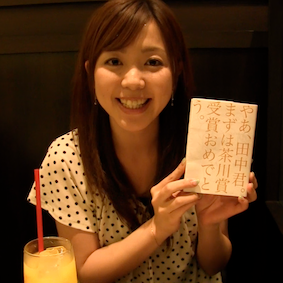 やあ、田中君
まずは茶川賞
受賞おめでと
う。